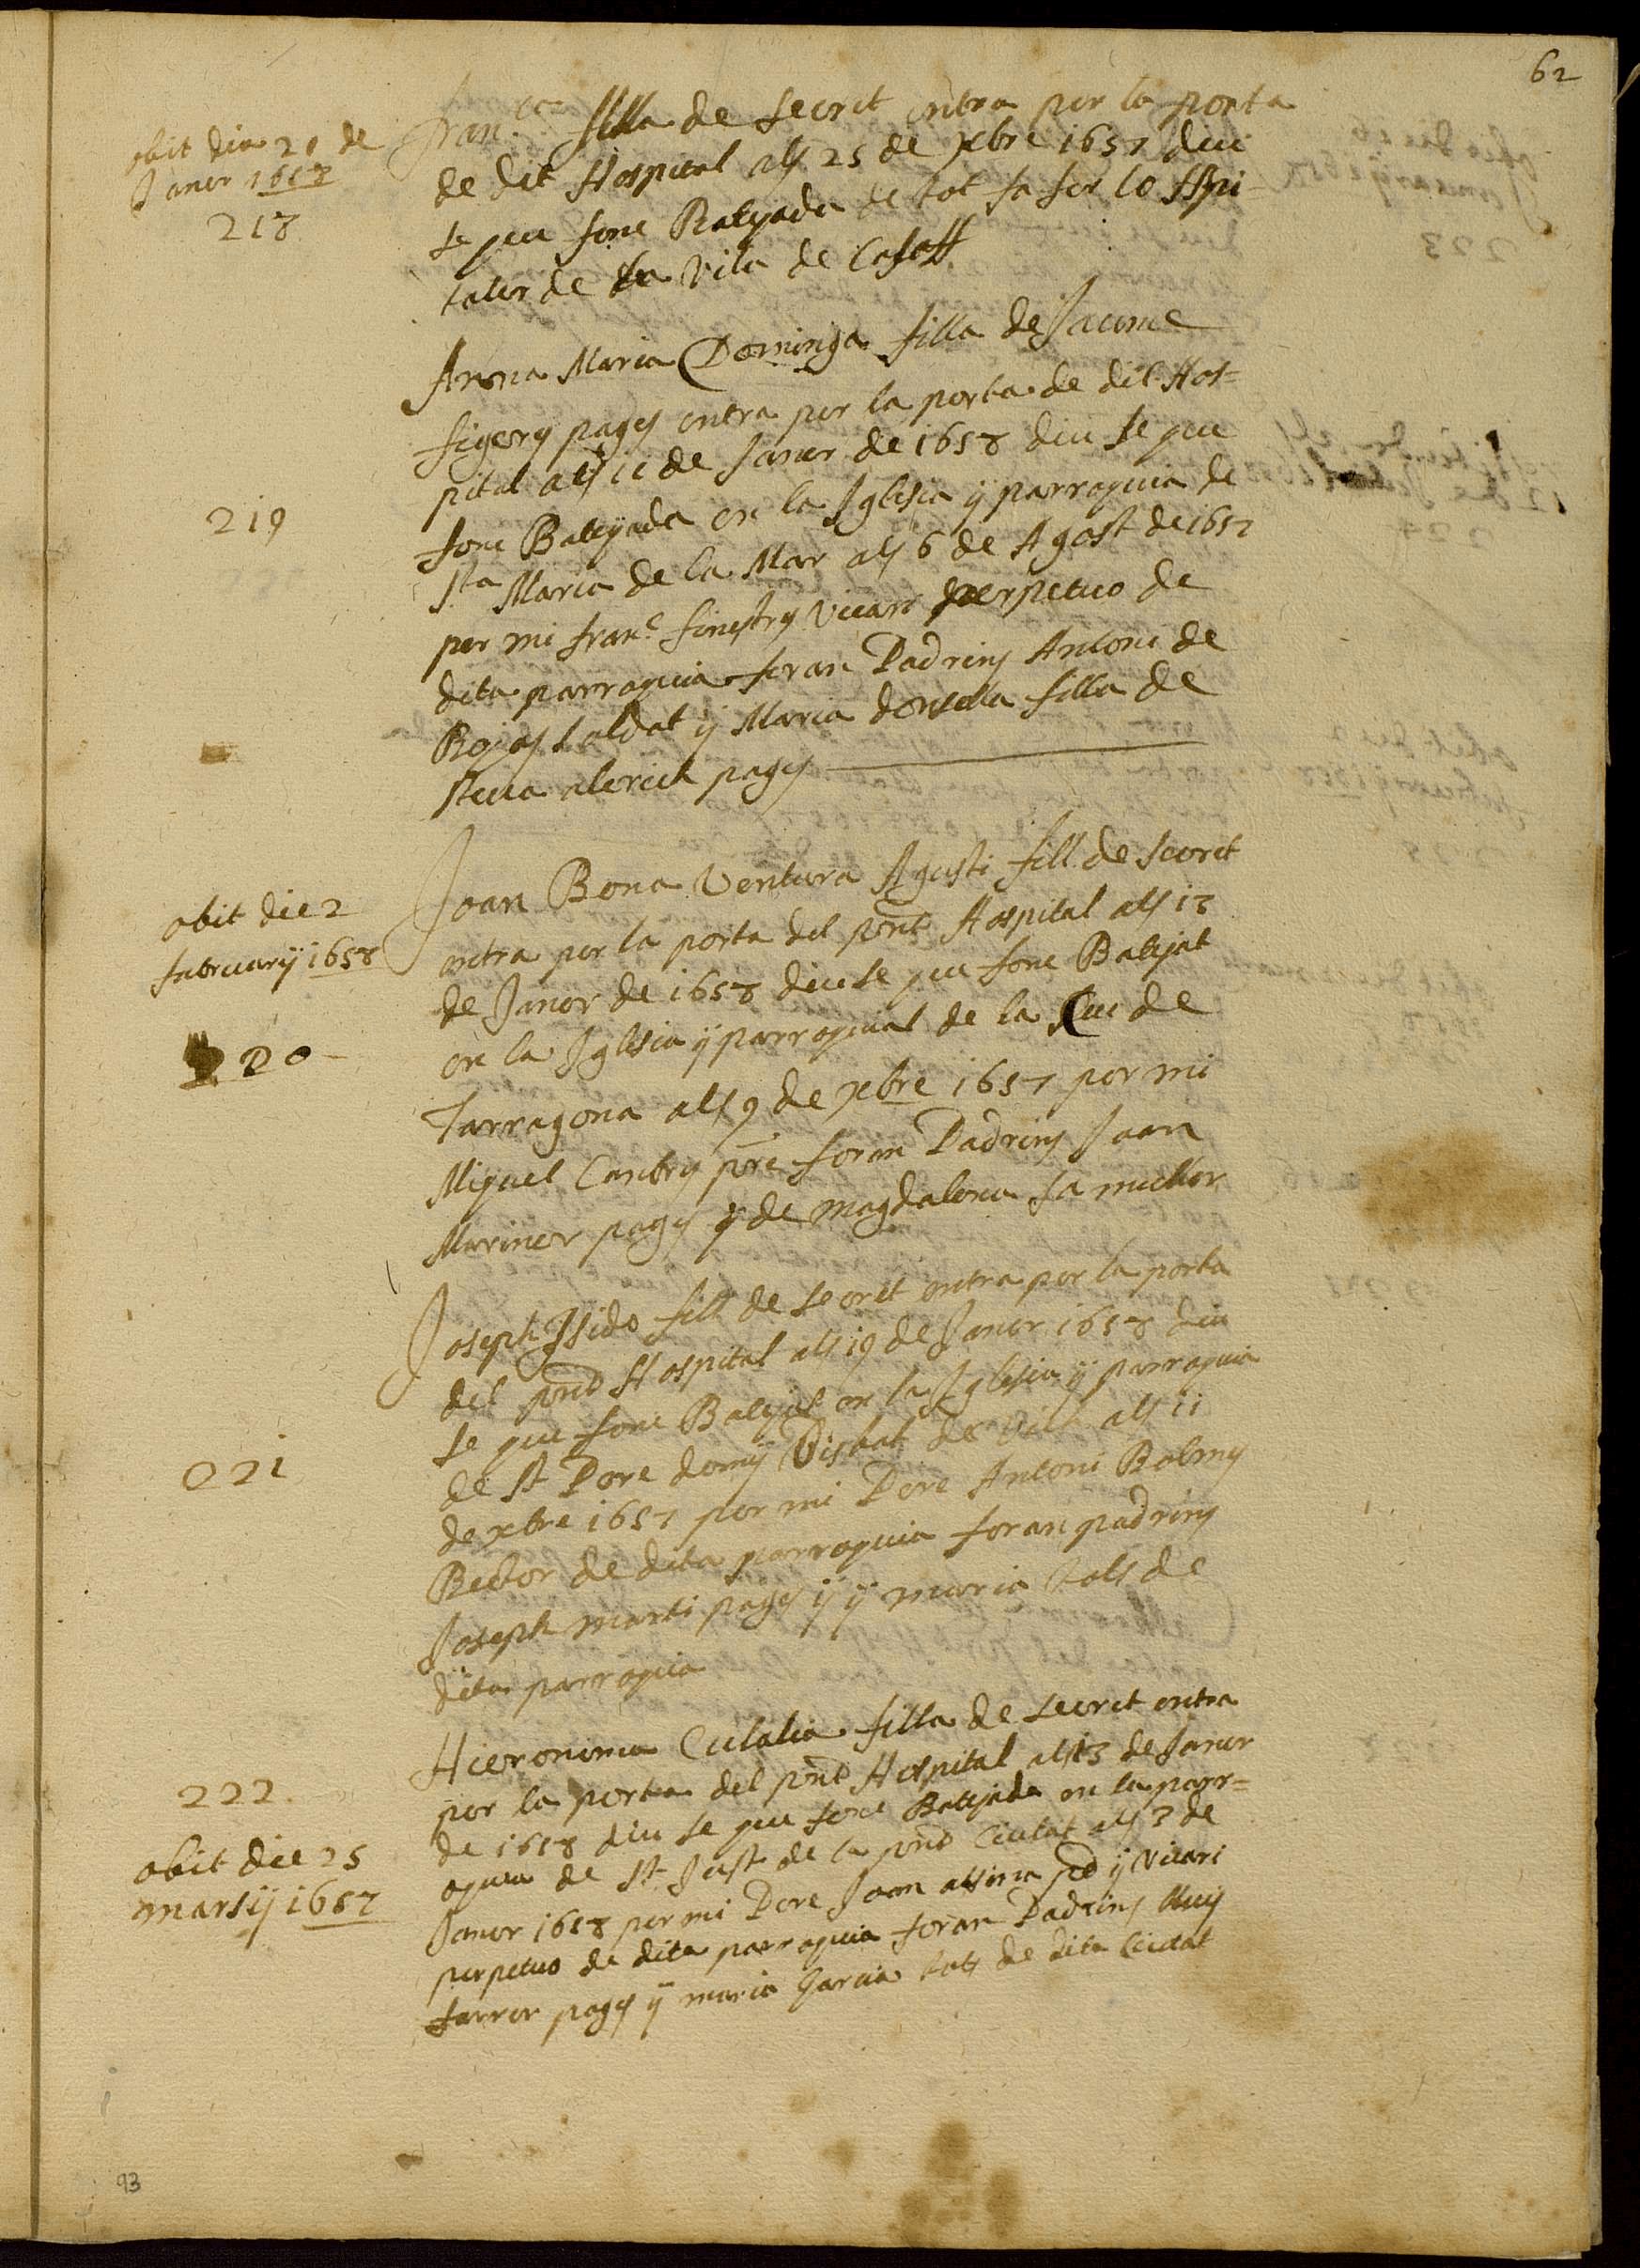 62
obit dia 20 de
Janer 1658
218
Fran.ca filla de secret entra per la porta
de dit Hospital als 25 de xbre 1657 diu
se que fonc Batejada de tot fa fer lo Spi-
taler de la Vila de
219
Anna Maria Dominga filla de Jaume
figeres pages entra per la porta de dit Hos=
pital als 11 de Janer de 1658 diu se que
fonc Batejada en la Iglesia ÿ parroquia de
Sta Maria de la Mar als 6 de Agost de 1657
per mi Franc finestres Vicari perpetuo de
dita parroquia foran Padrins Antoni de
Rojas soldat ÿ Maria donsella filla de
steva pages
obit die 2
februarÿ 1658
220
Joan Bona Ventura Agusti fill de secret
entra per la porta del pnt Hospital als 13
de Janer de 1658 diu se que fonc Batejat
en la Iglesia ÿ parroquial de la Seu de
Tarragona als 9 de xbre 1657 per mi
Miquel pre foran Padrins Joan
Mariner pages y de magdalena sa muller
221
Joseph Isido fill de secret entra per la porta
del pnt Hospital als 19 de Janer 1658 diu
se que fonc Batejat en la Iglesia ÿ parroquia
de St Pere Bisbat de Vich als 11
de xbre 1657 per mi Pere Antoni
Rector de dita parroquia foran padrins
Joseph marti pages ÿ ÿ maria tots de
dita parroquia
222
obit die 25
marsÿ 1657
Hieronima Eulalia filla de secret entra
per la porta del pnt Hospital als 13 de Janer
de 1658 diu se que fonc Batejada en la parr=
oquia de St Just de la pnt Ciutat als 3 de
Janer 1658 per mi Pere Joan alsina ÿ Vicari
perpetuo de dita parroquia foran Padrins
ferrer pages ÿ maria Garcia tots de dita Ciutat
93